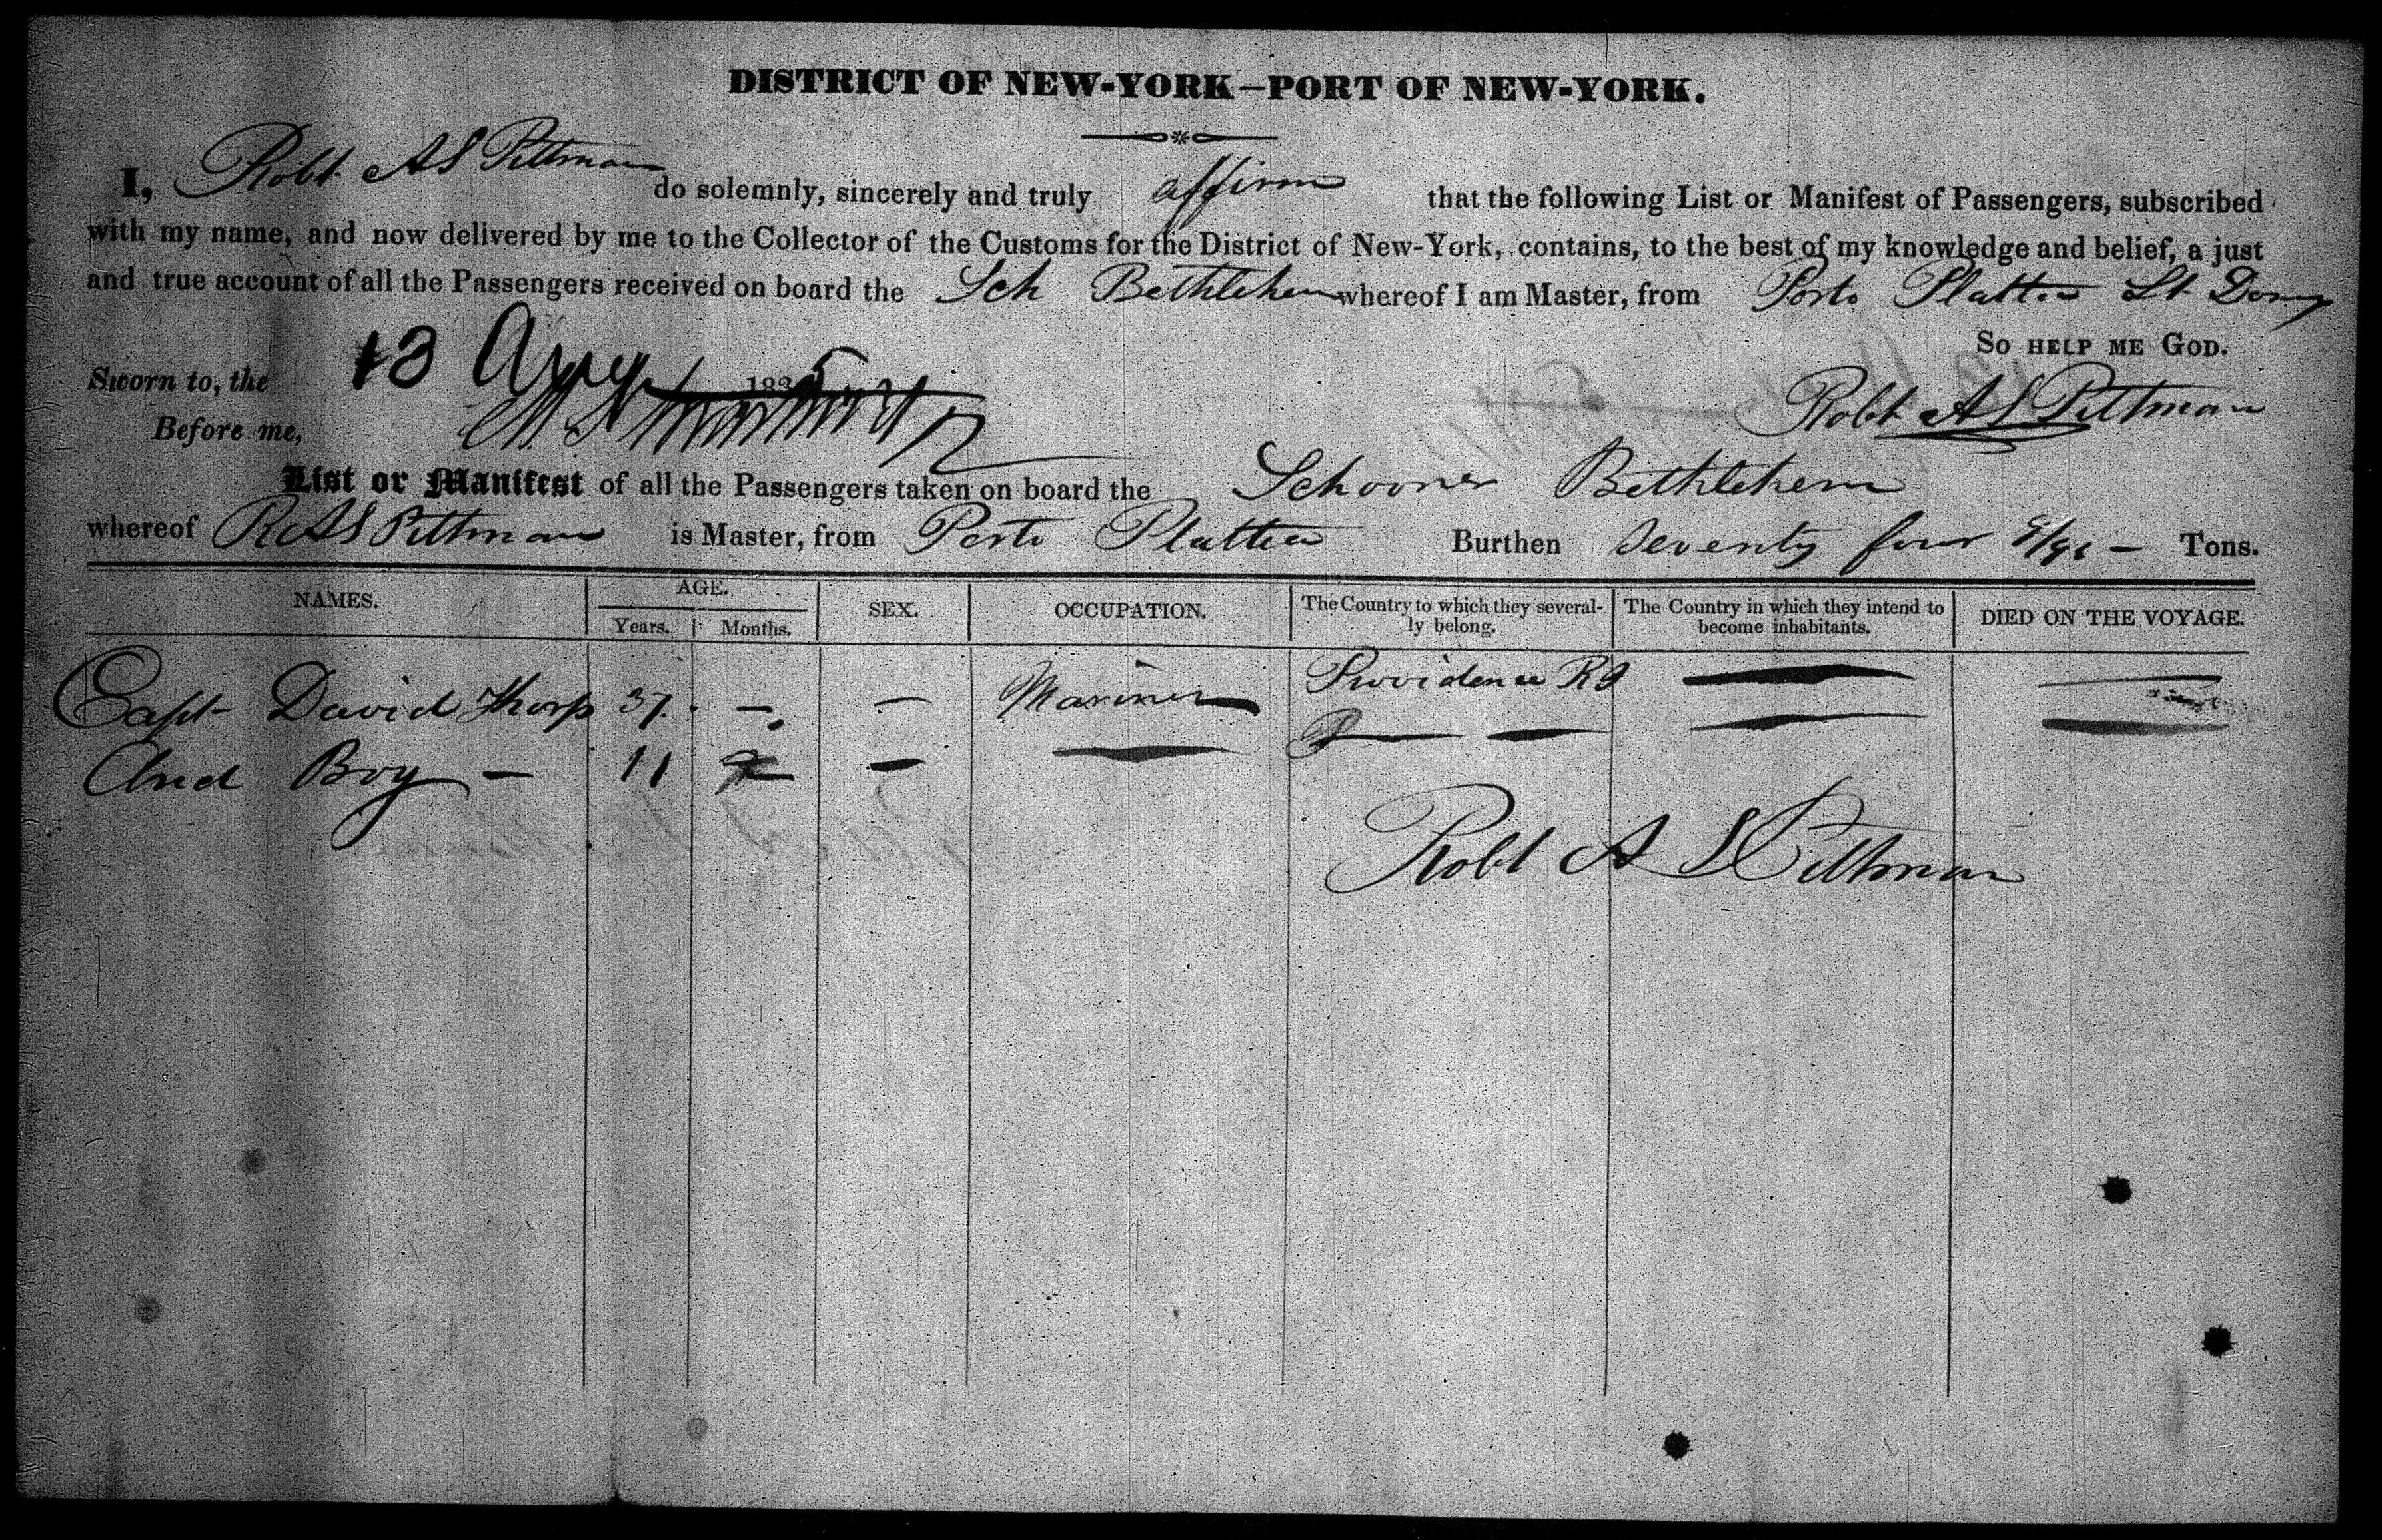 DISTRICT OF NEW-YORK—PORT OF NEW-YORK.
I, Robt A S Pittman do solemnly, sincerely and truly affirm that the following List or Manifest of Passengers, subscribed
with my name, and now delivered by me to the Collector of the Customs for the District of New-York, contains, to the best of my knowledge and belief, a just
and true account of all the Passengers received on board the Sch Bethlehem whereof I am Master, from Porto Platta St Domg
So HELP ME GOD.
Sworn to, the 13 Augt 1835
Robt A S Pittman
Before me,
List or Manifest of all the Passengers taken on board the Schooner Bethlehem
whereof R A S Pittman is Master, from Porto Platta Burthen Seventy four /96 — Tons.
NAMES. AGE. SEX. OCCUPATION. The Country to which they several- The Country in which they intend to DIED ON THE VOYAGE.
Years. Months. ly belong. become inhabitants.
Capt David Thorp 37 — — Mariner Providence RI — —
And Boy — 11 — — — — — —
Robt A S Pittman